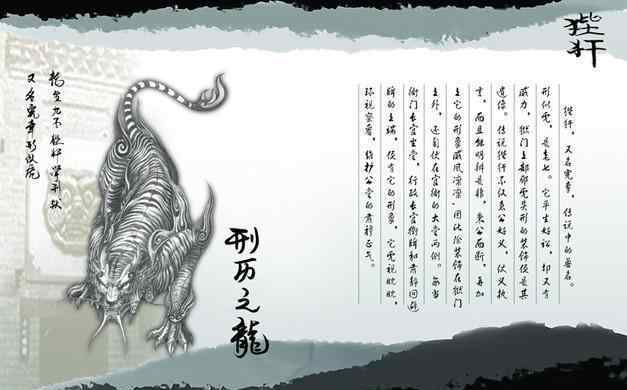 狴犴
狴犴，又名宪章，传说中的兽名。
形似虎，是老七。它平生好讼，却又有
威力，狱门上部那虎头形的装饰便是其
遗像。传说狴犴不仅急公好义，仗义执
言，而且能明辨是非，秉公而断，再加
上它的形象威风凛凛，因此除装饰在狱门
上外，还匐伏在官衙的大堂两侧。每当
衙门长官坐堂，行政长官衔牌和肃静回避
牌的上端，便有它的形象，它虎视眈眈，
环视察看，维护公堂的肃穆正气。
刑历之龍
龙生九子狴犴掌刑狱
又名宪章形似虎